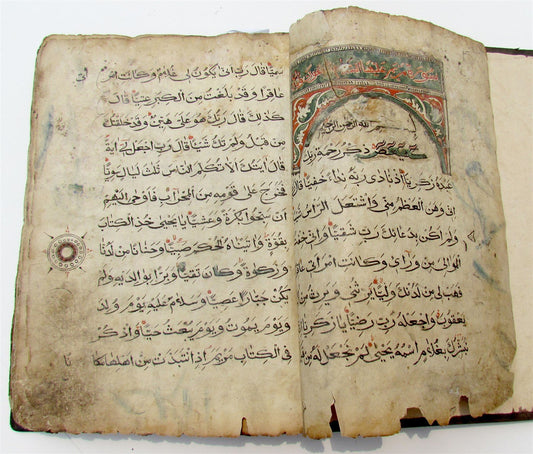 بسم الله الرحمن الرحيم
كهيعص ذكر رحمة ربك
عبده زكريا اذ نادى ربه نداء خفيا قا
انى وهن العظم منى واشتعل الراس
ولم اكن بدعائك رب شقيا وانى خف
الموالى من وراى وكانت امراتى
فهب لى من لدنك وليا يرثنى ويرث من
يعقوب واجعله رب رضيا يا زكريا
نبشرك بغلام اسمه يحيى لم نجعل له من
سميا قال رب انى يكون لى غلام وكانت امر
عاقرا وقد بلغت من الكبر عتيا قال
كذلك قال ربك هو على هين وقد خلقتك
من قبل ولم تك شيئا قال رب اجعل لى اية
قال ايتك الا تكلم الناس ثلث ليال سويا
فخرج على قومه من المحراب فاوحى اليهم
ان سبحوا بكرة وعشيا يا يحيى خذ الكتاب
بقوة واتيناه الحكم صبيا وحنانا من لدنا
وزكوة وكان تقيا وبرا بوالديه ولم
يكن جبارا عصيا وسلام عليه يوم ولد
ويوم يموت ويوم يبعث حيا واذكر
فى الكتاب مريم اذ انتبذت من اهلها مكا
نا